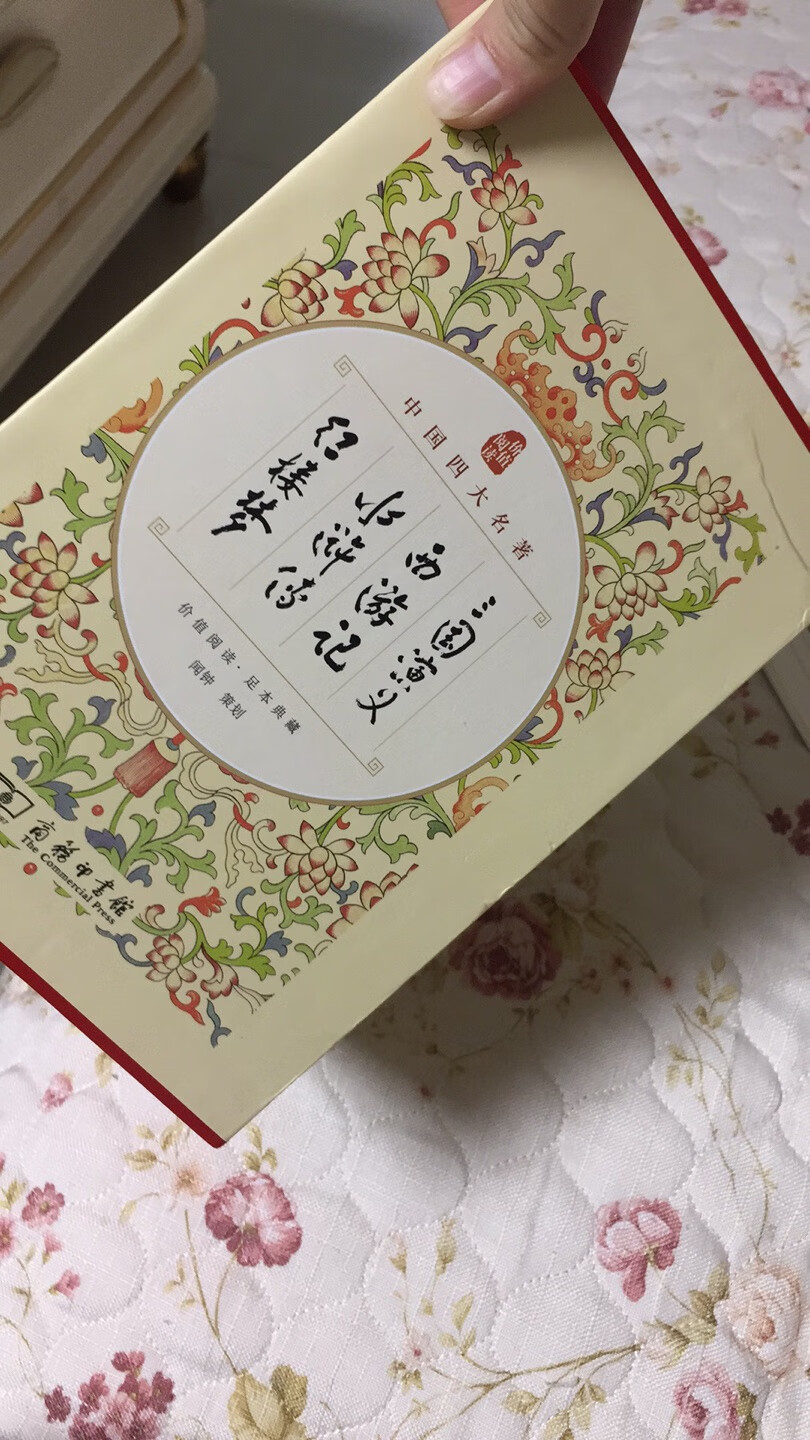 价值
阅读
中国四大名著
三国演义
西游记
水浒传
红楼梦
价值阅读·足本典藏
闻钟 策划
商务印书馆
The Commercial Press